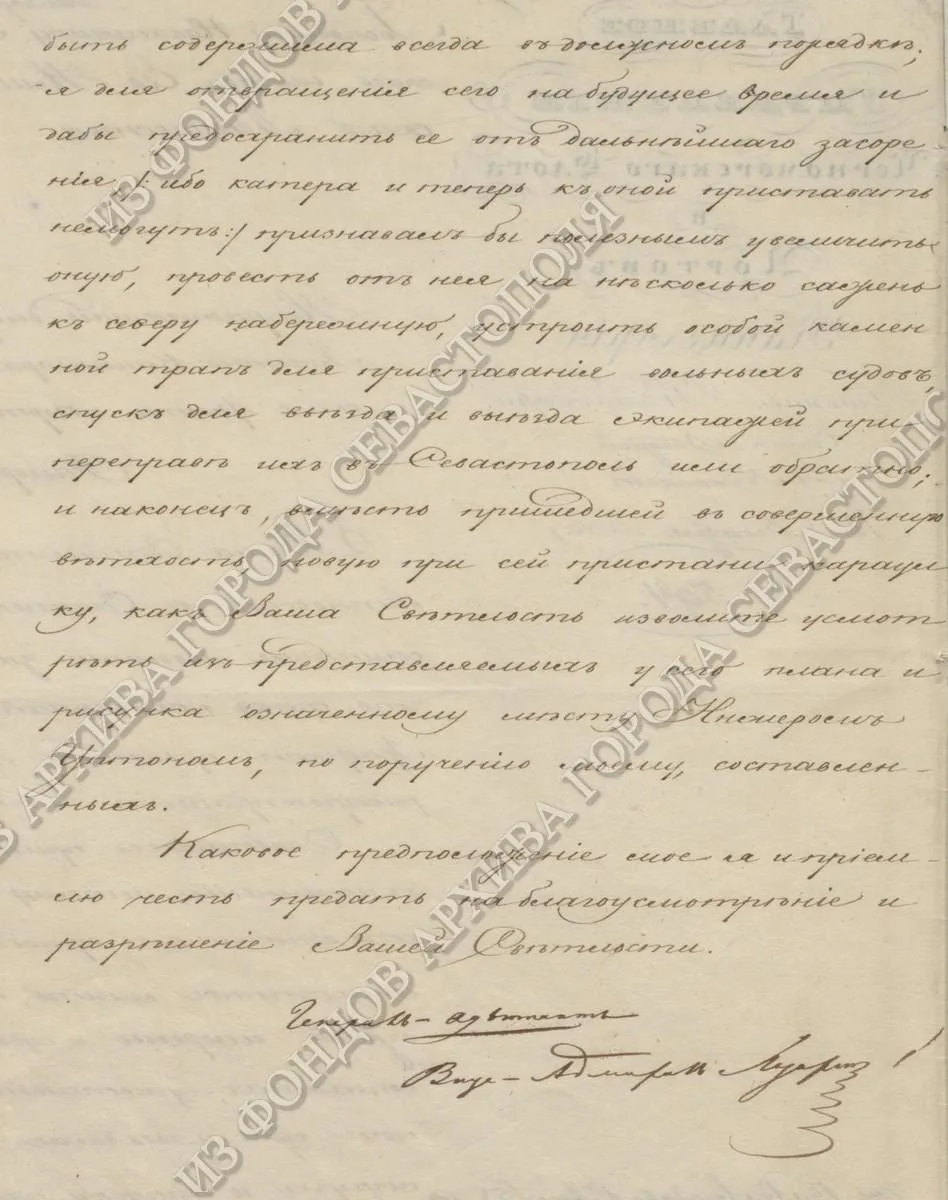 быть содержима всегда въ должномъ порядкѣ,
я для отвращенія сего на будущее время и
дабы предохранить ее отъ дальнѣйшаго засоре-
нія /: ибо катера и теперь къ оной приставать
немогутъ:/ признавалъ бы полезнымъ увеличить
оную, провесть отъ нея на нѣсколько саженъ
къ северу набережную, устроить особой камен
ной трапъ для приставанія вольныхъ судовъ,
спускъ для въѣзда и выѣзда экипажей при-
переправѣ ихъ въ Севастополь или обратно;
и наконецъ, вмѣсто пришедшей въ совершенную
вѣтхость, новую при сей пристани караул
ку, какъ Ваша Свѣтлость изволите усмот
рѣть изъ представляемыхъ у сего плана и
рисунка означенному мѣсту Инжеромъ
Уптономъ, по порученію моему, составлен-
ныхъ.
Каковое предположеніе мое я и пріем-
лю честь предать на благоусмотрѣніе и
разрѣшеніе Вашей Свѣтлости.
Генералъ-адъютантъ
Вице-Адмиралъ Лазаревъ
ИЗ ФОНДОВ АРХИВА ГОРОДА СЕВАСТОПОЛЯ